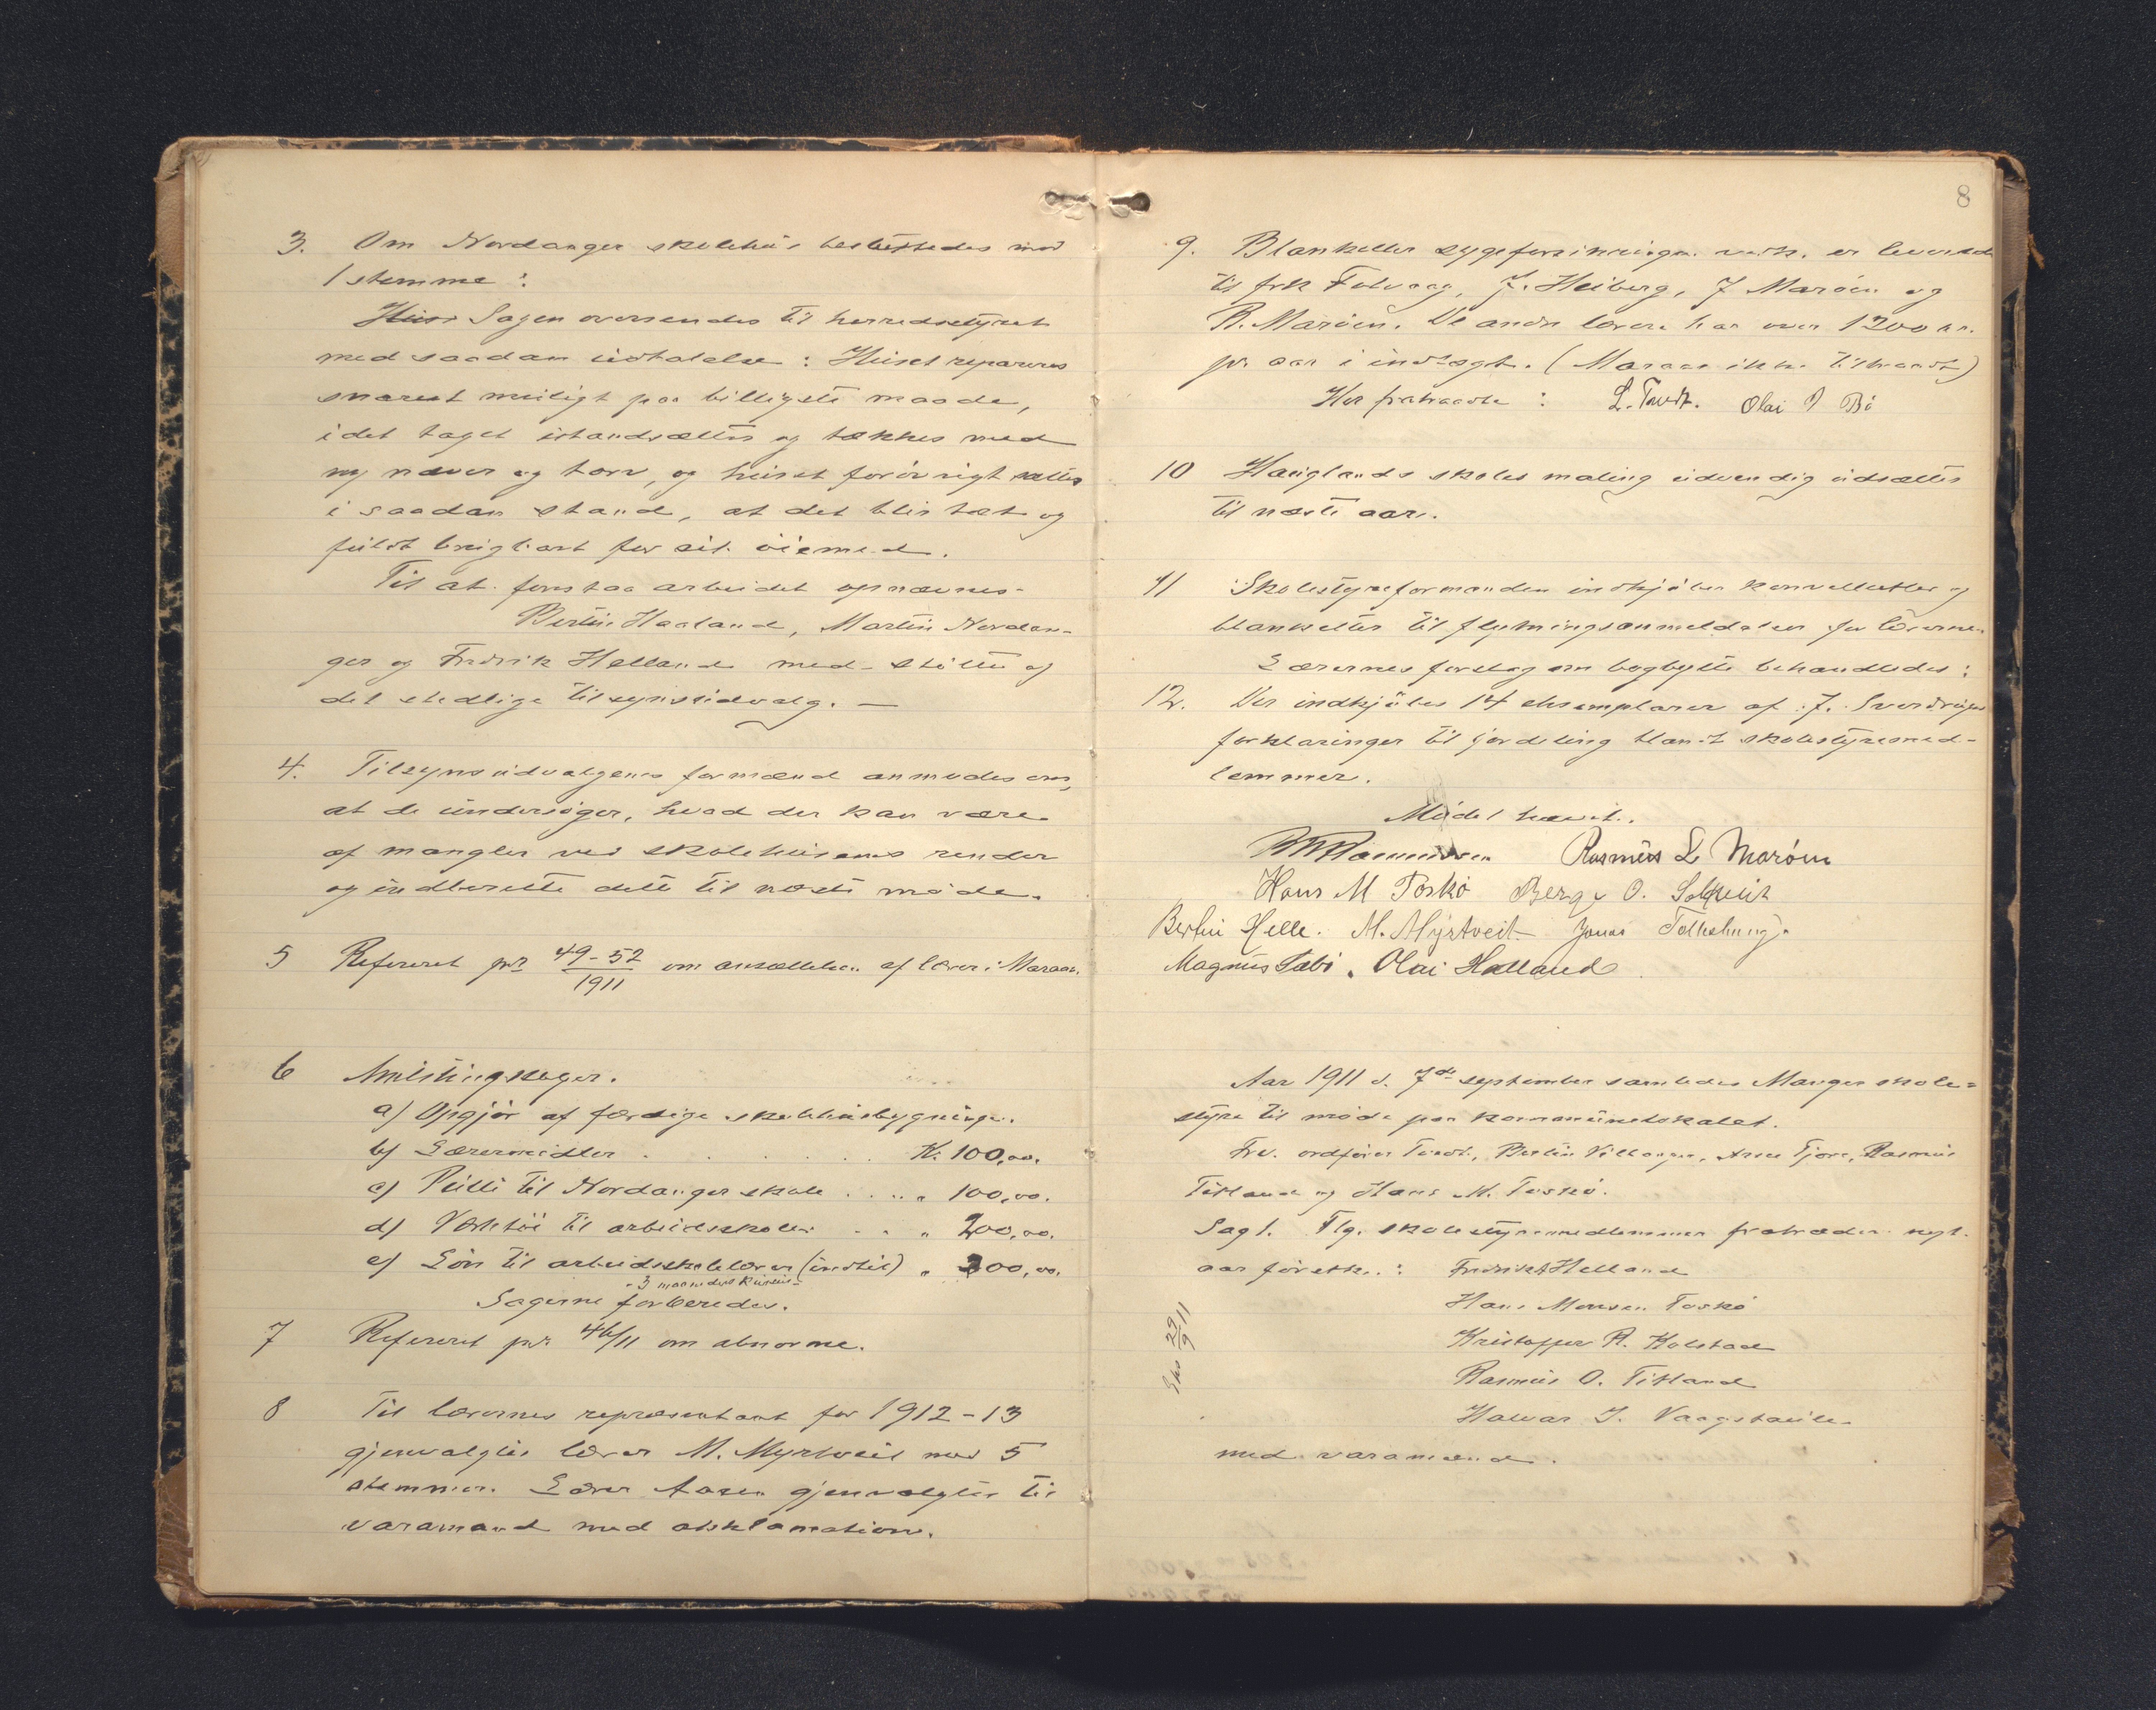 3. Om Nordanger skolehus besluttedes mod
1 stemme:
Sagen oversendes til herredsstyret
med saadan udtalelse: Huset repareres
snarest muligt paa billigste maade,
idet taget istandsættes og tækkes med
ny næver og torv, og huset forøvrigt sættes
i saadan stand, at det blir tæt og
fuldt brugbart for sit øiemed.
Til at forestaa arbeidet opnævnes
Bertin Haaland, Martin Nordan-
ger og Fredrik Helland med støtte af
det stedlige tilsynsudvalg. —
4. Tilsynsudvalgenes formænd anmodes om,
at de undersøger, hvad der kan være
af mangler ved skolehusenes render
og indberette dette til næste møde.
5 Refereret pr 49-52/1911 om ansættelsen af lærer i Maraas.
6 Amtstingssager.
a) Opgjør af færdige skolehusbygninger.
b) Læremidler . . . . . . Kr. 100,00.
c) Pulte til Nordanger skole . . . „ 100,00.
d) Verktøi til arbeidsskolen . . „ 200,00.
e) Løn til arbeidsskolelærer (indtil) „ 300,00.
- 3 maaneders kursus -
Sagerne forberedes.
7 Refereret pr. 46/11 om abnorme.
8 Til lærernes repræsentant for 1912-13
gjenvalgtes lærer M. Myrtveit med 5
stemmer. Lærer Aasen gjenvalgtes til
varamand med akklamation.
8
9. Blanketter sygeforsikringen vedk. er leveret
til frk Fotvaag, J. Heiberg, J Marøen og
R. Marøen. De andre lærere har over 1200 kr.
pr. aar i indtægt. (Maraas ikke tiltraadt)
Her fratraadte: L. Tvedt. Olai J Bø
10 Hauglands skoles maling udvendig udsættes
til næste aar.
11 Skolestyreformanden indkjøber konvollutter og
blanketter til flytningsanmeldelser for lærerne.
Lærernes forslag om bogbytte behandledes:
12. Der indkjøbes 14 eksemplarer af J. Sverdrups
forklaringer til fordeling blandt skolestyremed-
lemmer.
Mødet hævet.
Rasmus L Marøen
Hans M Toskø Berge O. Soltveit
Bertin Helle. M. Myrtveit Jonas
Magnus Sæbø. Olai Halland
Aar 1911 d. 7de september samledes Manger skole-
styre til møde paa kommunelokalet.
Frav. ordfører Tvedt, Bertin Villanger, Arne Fjore, Rasmus
Titland og Hans M. Toskø.
Sag 1. Flg. skolestyremedlemmer fratræder nyt-
aar førstk.: Fredrik A Helland
Hans Monsen Toskø
Kristoffer R. Kolstad
Rasmus O. Titland
Halvar J. Vaagstaule
med varamænd.
Eks 29/9 11